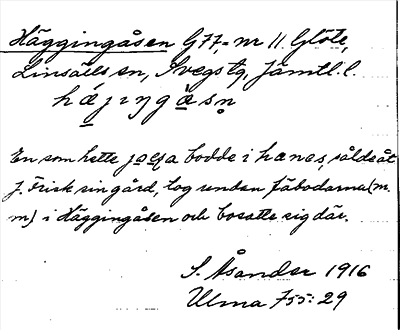 Häggingåsen G77, nr 11. Glöte,
Linsälls sn, Svegs tg, Jämtl. l.
hæjıŋgåsn̥
En som hette joƨa bodde i hænes, sålde åt
J. Frisk sin gård, tog undan fäbodarna (m.
m) i Häggingåsen och bosatte sig där.
S. Åsander 1916
Ulma 755: 29